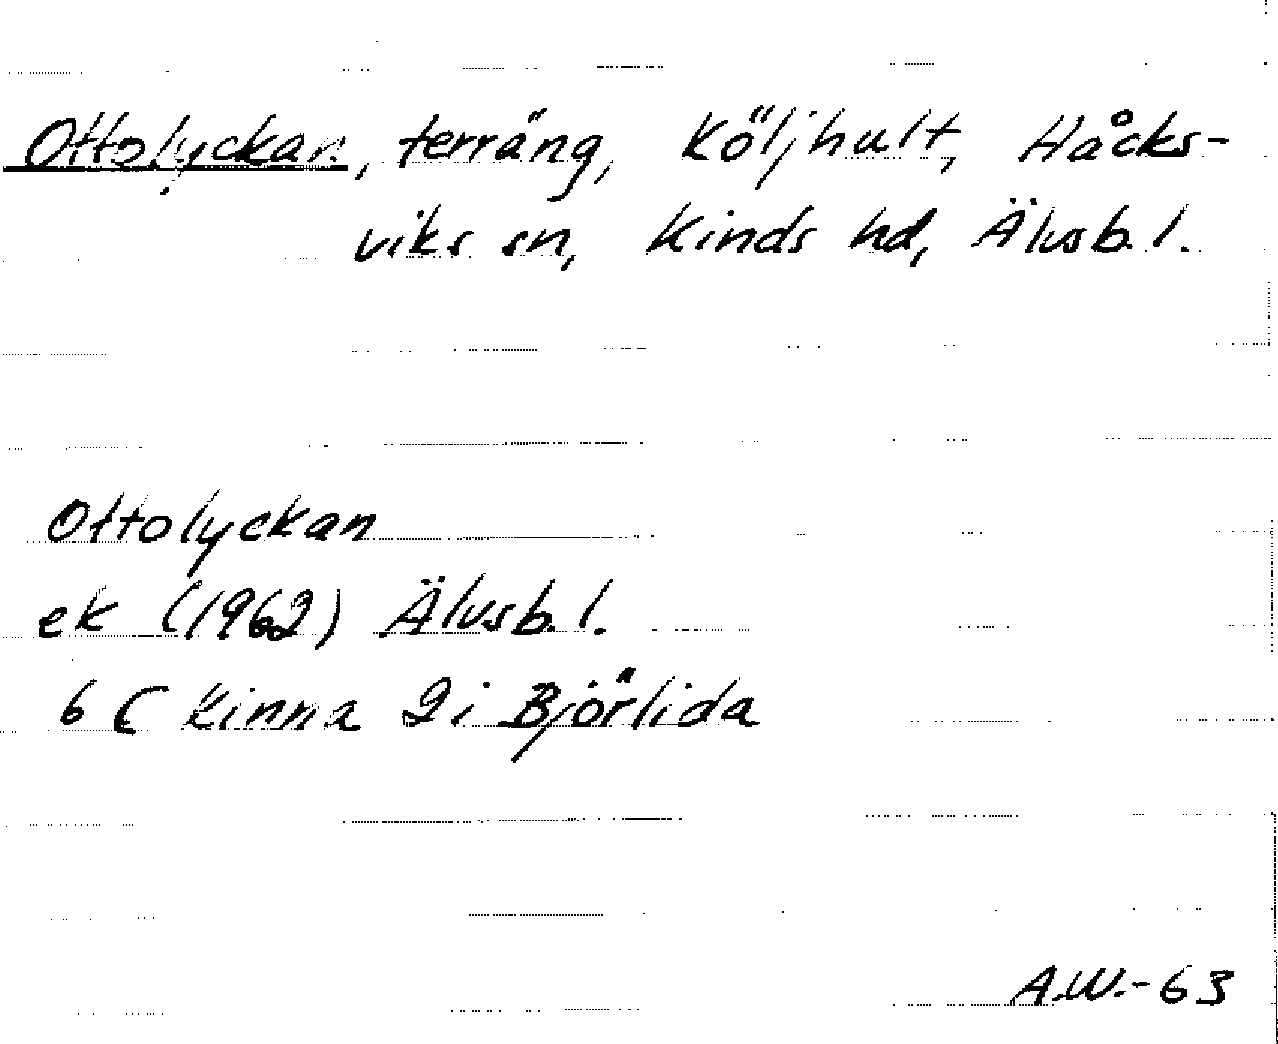 Ottolyckan, terräng, Köljhult, Håcks-
viks sn, Kinds hd, Älvsb. l.
Ottolyckan
ek (1962) Älvsb. l.
6 C Kinna 2 i Björlida
A.W.-63